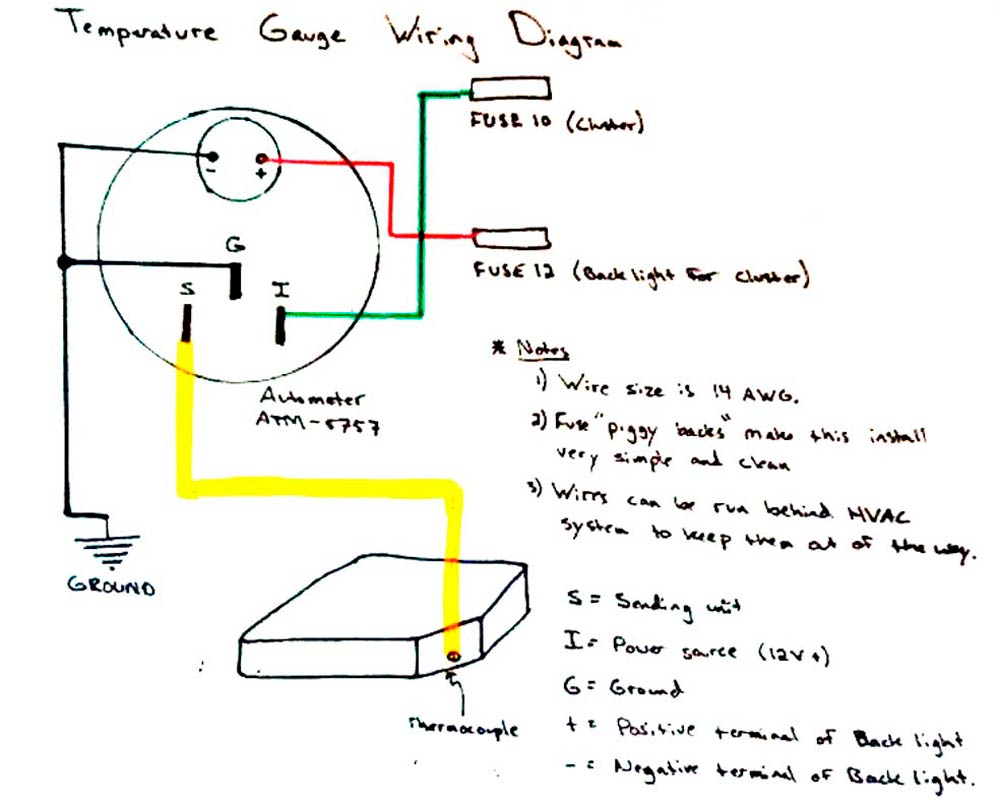 Temperature Gauge Wiring Diagram
FUSE 10 (Cluster)
- +
G
S I
FUSE 12 (Back light for cluster)
Autometer
ATM-5757
* Notes
1) Wire size is 14 AWG.
2) Fuse "piggy backs" make this install
very simple and clean
3) Wires can be run behind HVAC
system to keep them out of the way.
GROUND
Thermocouple
S = Sending unit
I = Power source (12V+)
G = Ground
+ = Positive terminal of Back light
- = Negative terminal of Back light.